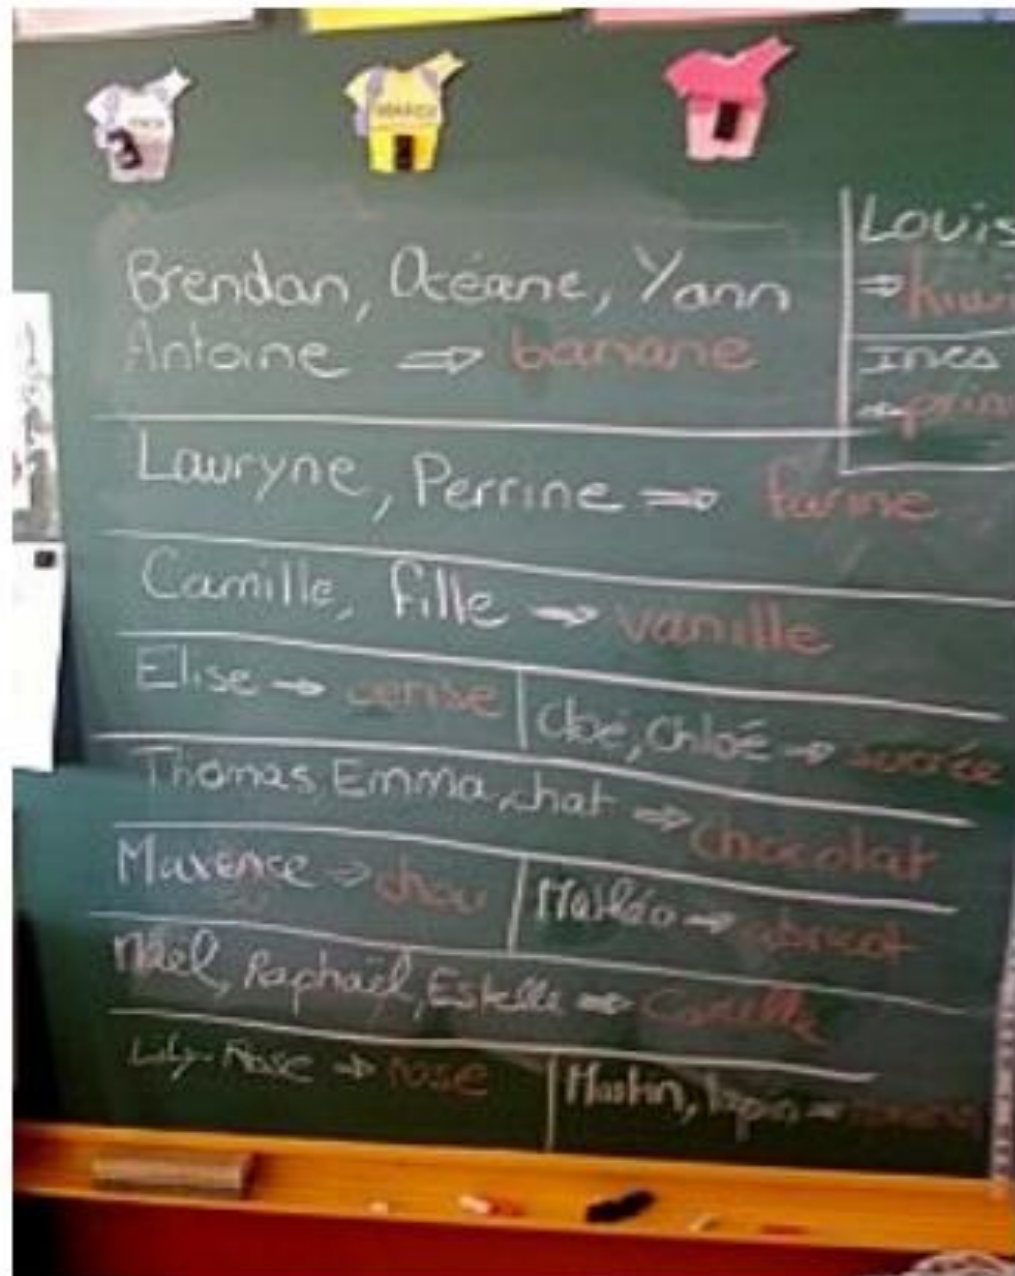 Brendan, Océane, Yann
Antoine ⇒ banane
Louis
⇒ kiwi
Ines
Lauryne, Perrine ⇒ farine
Camille, fille → vanille
Elise → cerise
Cloé, Chloé → sucrée
Thomas, Emma, chat ⇒ chocolat
Maxence → chou
Maïléo → abricot
Maël, Raphaël, Estelle ⇒
Lily-Rose → rose
lapin →